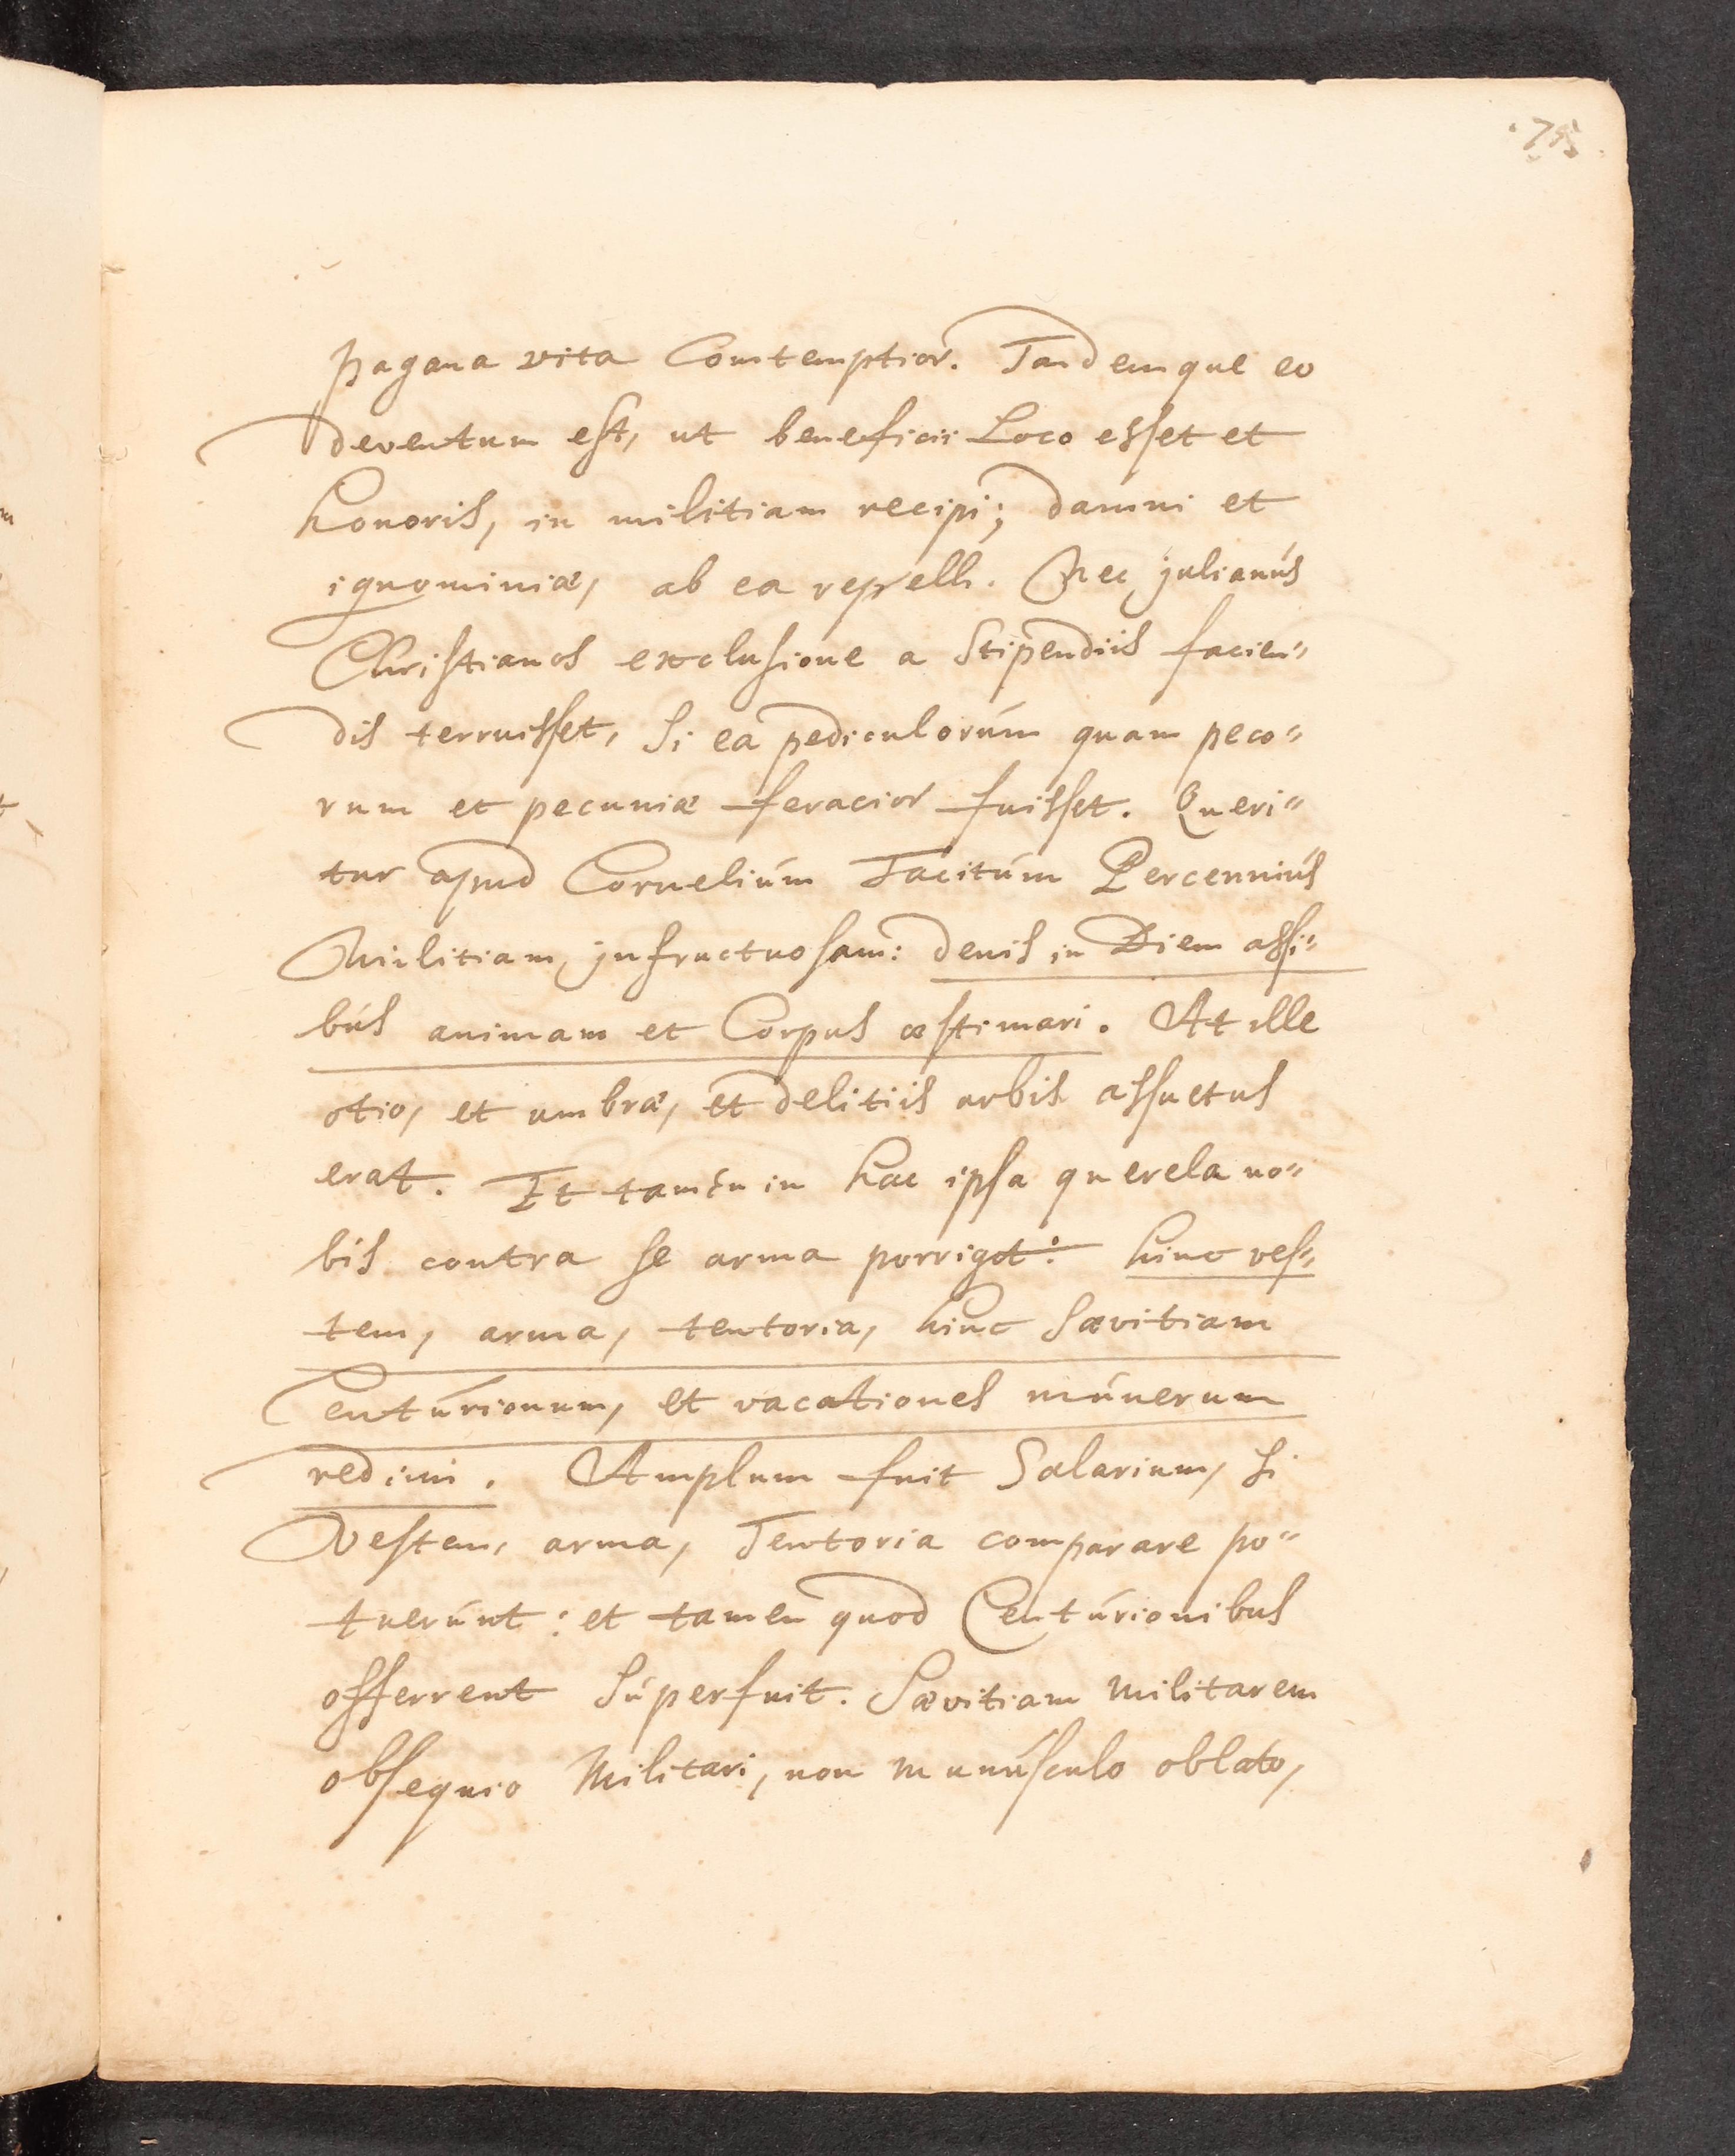 75
pagana vita Comtemptior. Tandemque eo
deventum est, ut beneficii Loco esset et
honoris, in militiam recipi; damni et
ignominiæ, ab ea repelli. Nec julianús
Christianos exclusione a Stipendiis facien"
dis terruisset, si ea pediculorúm quam peco"
rum et pecuniæ feracior fuisset. Queri"
tur apud Corneliúm Tacitúm Percenniús
Militiam jnfructuosam: denis in Diem assi"
bús animam et Corpus æstimari. At ille
otio, et umbræ, et delitiis urbis assuetus
erat. Et tamen in hac ipsa querela no"
bis contra se arma porrigit: hinc ves"
tem, arma, tentoria, hinc Sævitiam
Centúrionum, et vacationes múnerum
redimi. Amplum fuit Salarium, si
Vestem, arma, Tentoria comparare po"
tuerúnt: et tamen quod Centúrionibus
offerrent Súperfuit. Sævitiam Militarem
obsequio Militari, non munúsculo oblato,